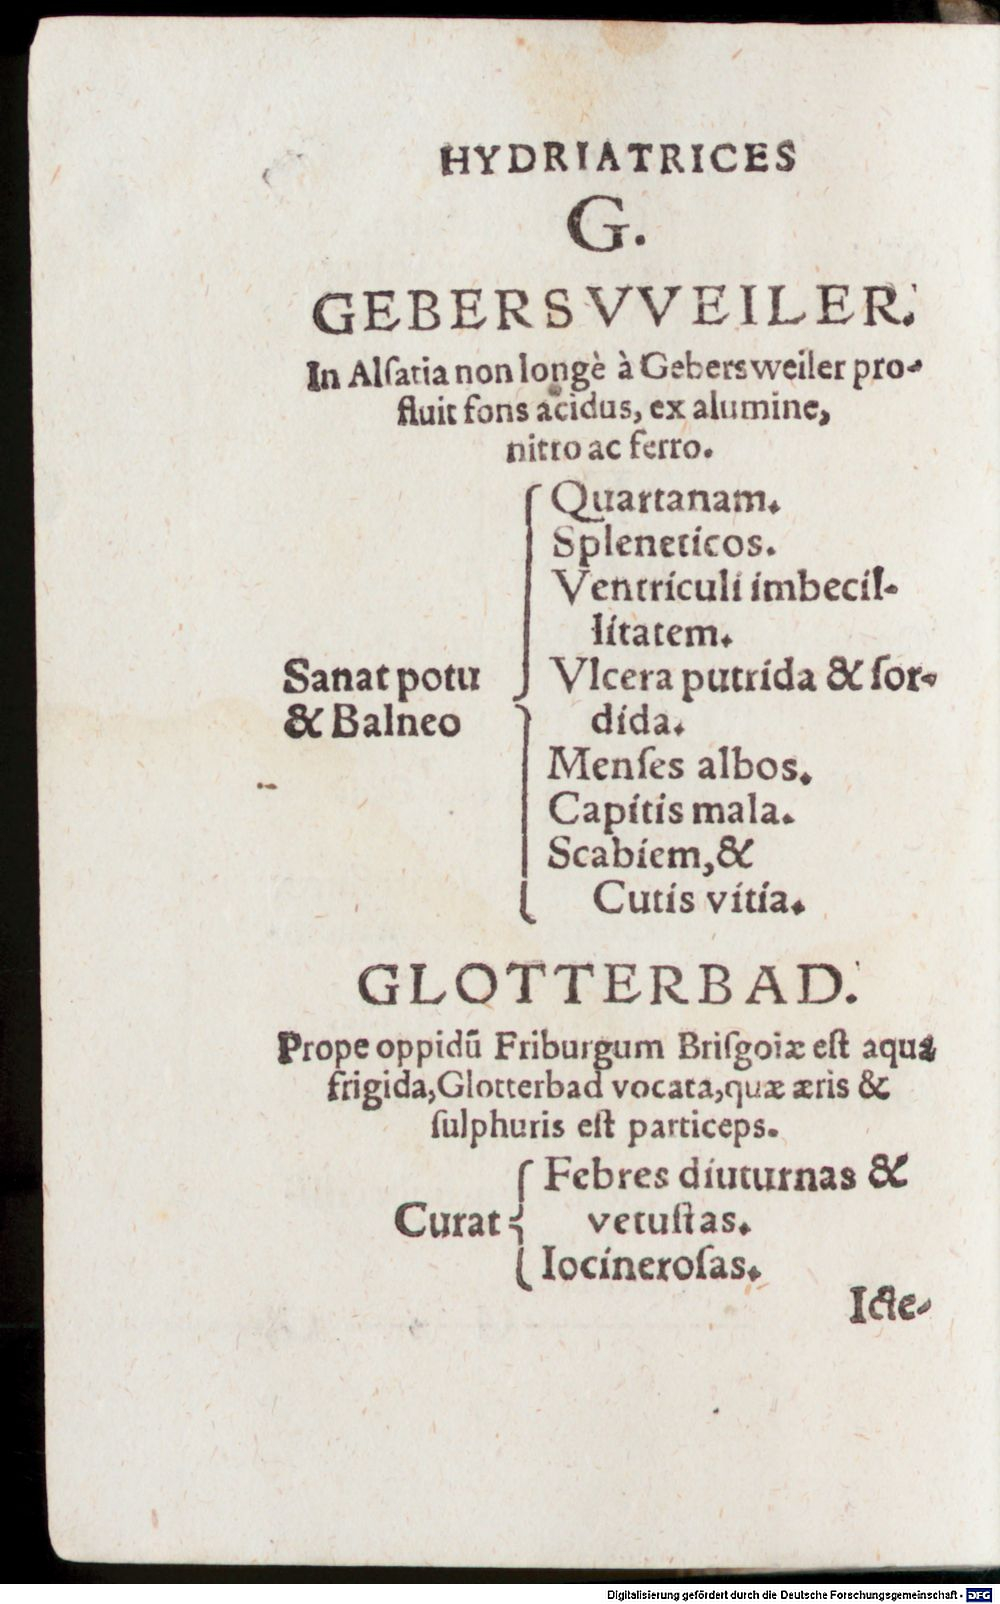 HYDRIATRICES
G.
GEBERSVVEILER.
In Alſatia non longè à Gebersweiler pro-
fluit fons acidus, ex alumine,
nitro ac ferro.
Quartanam.
Spleneticos.
Ventriculi imbecil-
litatem.
Sanat potu
& Balneo
Vlcera putrida & ſor-
dida.
Menſes albos.
Capitis mala.
Scabiem, &
Cutis vitia.
GLOTTERBAD.
Prope oppidũ Friburgum Briſgoiæ eſt aqua
frigida, Glotterbad vocata, quæ æris &
ſulphuris eſt particeps.
Curat
Febres diuturnas &
vetuſtas.
Iocineroſas.
Icte-
Digitalisierung gefördert durch die Deutsche Forschungsgemeinschaft - DFG